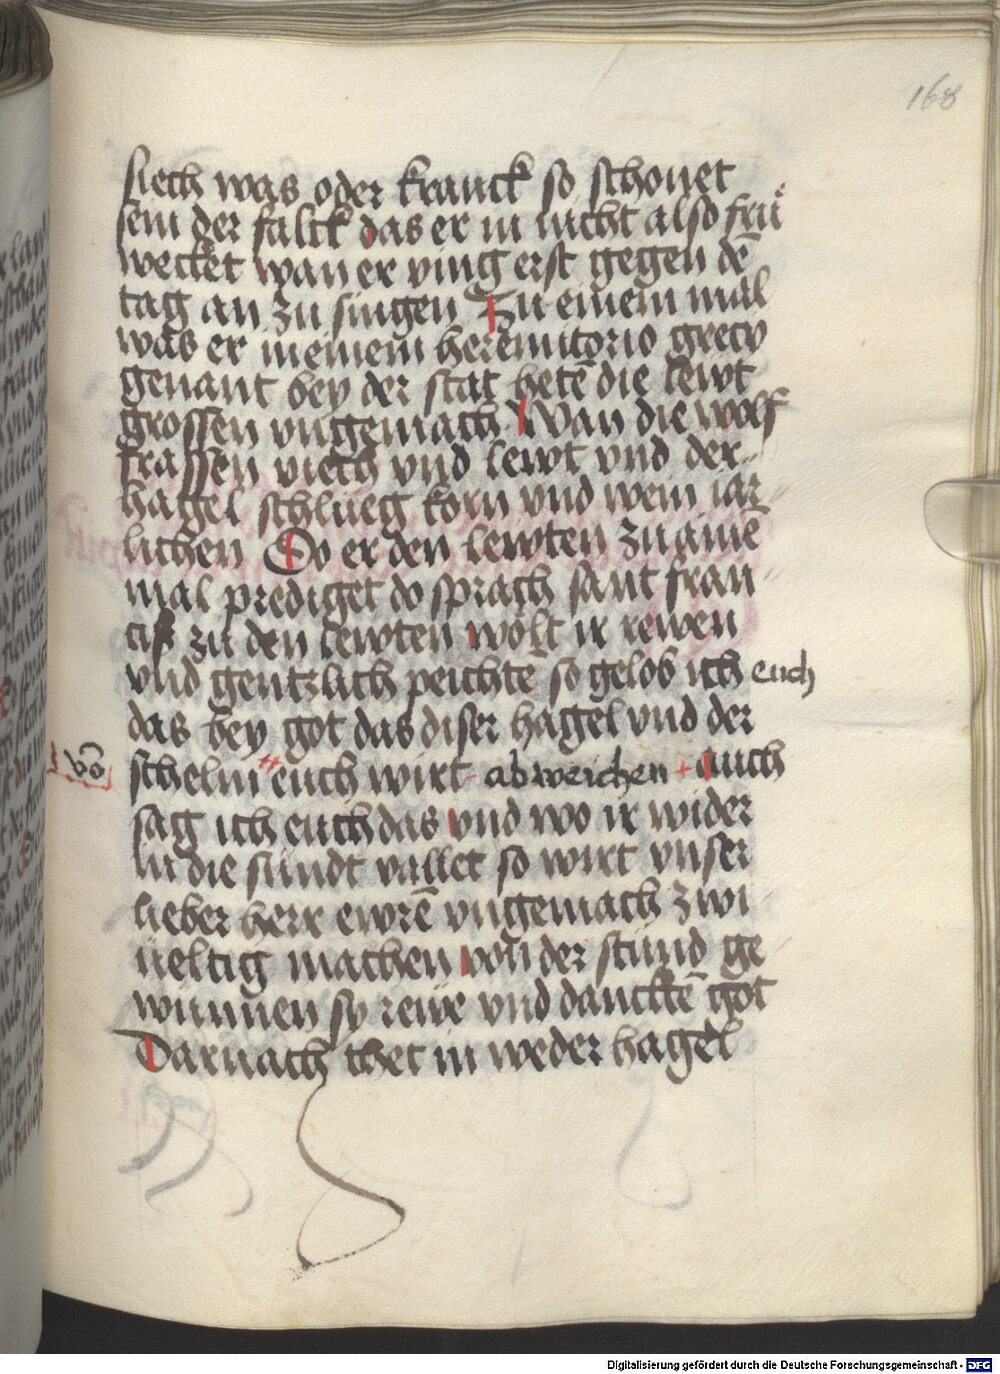 168
siech was oder kranck so schonet
sein der falck das er in nicht also frů
wecket wan er ving erst gegen dē
tag an zu singen Zu einem mal
was er in einem heremitorio grecy
genant bey der stat hetē die lewt
grossen vngemach Wan die wolf
frassen viech vnd lewt vnd der
hagel schlueg korn vnd wein iar
lichen Do er den lewten zu ainē
mal prediget do sprach sant fran
ciß zu den lewten wolt ir rewen
vnd gentzlich peichtē so gelob ich euch
das bey got das diser hagel vnd der
vō schelm euch wirt abweichen auch
sag ich euch das vnd wo ir wider
in die sundt vallet so wirt vnser
lieber herr ewrē vngemach zwi
ueltig machen von der stund ge
wunnen sy reue vnd dancktē got
Darnach thet in weder hagel
Digitalisierung gefördert durch die Deutsche Forschungsgemeinschaft - DFG